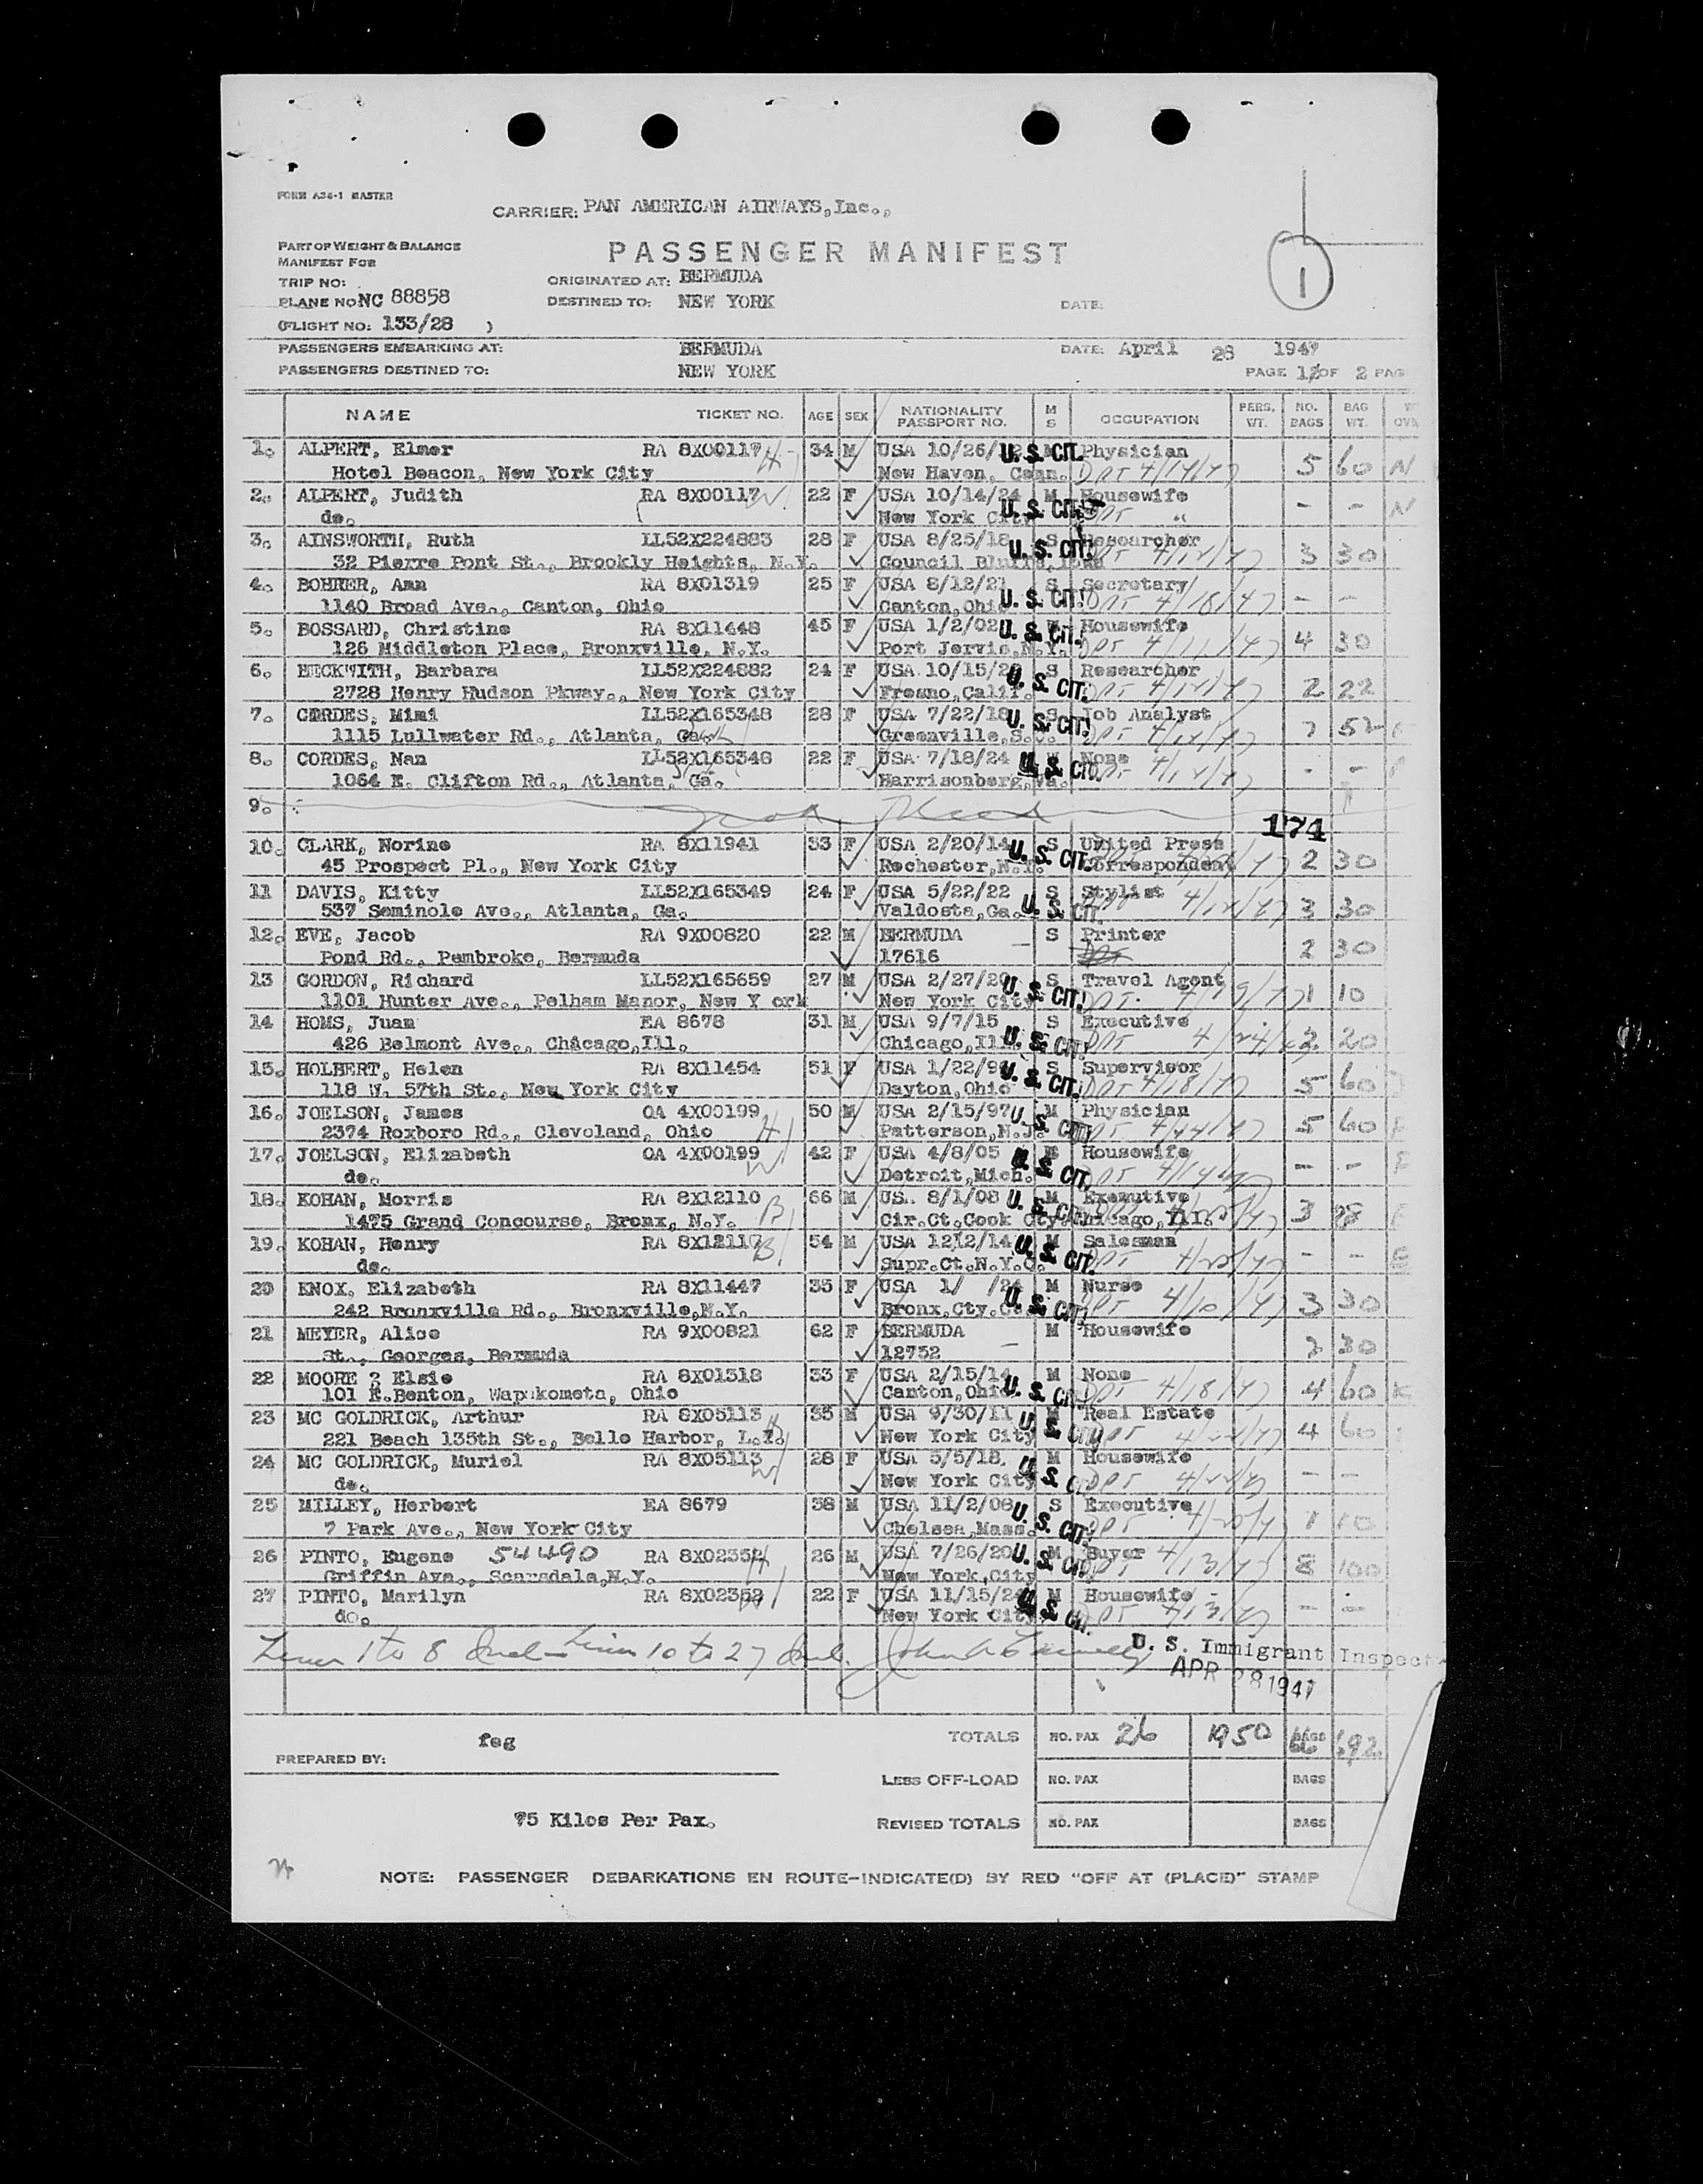 FORM A36-1 MASTER
CARRIER: PAN AMERICAN AIRWAYS, Inc.,
PART OF WEIGHT & BALANCE
MANIFEST FOR
PASSENGER MANIFEST
TRIP NO:
ORIGINATED AT: BERMUDA
PLANE NO NC 88858
DESTINED TO: NEW YORK
DATE:
1
(FLIGHT NO: 133/28 )
PASSENGERS EMBARKING AT: BERMUDA DATE: April 28 1947
PASSENGERS DESTINED TO: NEW YORK PAGE 1 OF 2 PAG
NAME TICKET NO. AGE SEX NATIONALITY PASSPORT NO. M S OCCUPATION PERS. WT. NO. BAGS BAG WT.
1. ALPERT, Elmer RA 8X00117 H 34 M USA 10/26/ U. S. CIT. Physician
Hotel Beacon, New York City New Haven, Conn. DPT 4/14/47 5 60 N
2. ALPERT, Judith RA 8X00117 W 22 F USA 10/14/24 M Housewife
do. New York City U. S. CIT. DPT " - - N
3. AINSWORTH, Ruth LL52X224883 28 F USA 8/25/18 S Researcher
32 Pierre Pont St., Brookly Heights, N.Y. Council Bluffs, Iowa U. S. CIT. DPT 4/12/47 3 30
4. BOHRER, Ann RA 8X01319 25 F USA 8/12/21 S Secretary
1140 Broad Ave., Canton, Ohio Canton, Ohio U. S. CIT. DPT 4/18/47 - -
5. BOSSARD, Christine RA 8X11448 45 F USA 1/2/02 U. S. CIT. Housewife
126 Middleton Place, Bronxville, N.Y. Port Jervis, N.Y. DPT 4/11/47 4 30
6. BECKWITH, Barbara LL52X224882 24 F USA 10/15/2 S Researcher
2728 Henry Hudson Pkway., New York City Fresno, Calif. U. S. CIT. DPT 4/12/47 2 22
7. CORDES, Mimi LL52X165348 28 F USA 7/22/18 S Job Analyst
1115 Lullwater Rd., Atlanta, Ga. Greenville, S.C. U. S. CIT. DPT 4/12/47 7 52
8. CORDES, Nan LL52X165348 22 F USA 7/18/24 U. S. CIT. None
1064 E. Clifton Rd., Atlanta, Ga. Harrisonberg, Va. DPT 4/12/47 - -
9. Not Used
174
10. CLARK, Norine RA 8X11941 33 F USA 2/20/14 S United Press
45 Prospect Pl., New York City Rochester, N.Y. U. S. CIT. Correspondent 2 30
11 DAVIS, Kitty LL52X165349 24 F USA 5/22/22 S Stylist
537 Seminole Ave., Atlanta, Ga. Valdosta, Ga. U. S. CIT. 4/12/47 3 30
12. EVE, Jacob RA 9X00820 22 M BERMUDA - S Printer
Pond Rd., Pembroke, Bermuda 17616 2 30
13 GORDON, Richard LL52X165659 27 M USA 2/27/20 S Travel Agent
1101 Hunter Ave., Pelham Manor, New Y ork New York City U. S. CIT. DPT. 4/19/47 1 10
14 HOMS, Juan EA 8678 31 M USA 9/7/15 S Executive
426 Belmont Ave., Chicago, Ill. Chicago, Ill. U. S. CIT. DPT 4/24/47 2 20
15. HOLBERT, Helen RA 8X11454 51 F USA 1/22/9 S Supervisor
118 W. 57th St., New York City Dayton, Ohio U. S. CIT. DPT 4/18/47 5 60
16. JOELSON, James OA 4X00199 H 50 M USA 2/15/97 M Physician
2374 Roxboro Rd., Cleveland, Ohio Patterson, N.J. U. S. CIT. DPT 4/14/47 5 60
17. JOELSON, Elizabeth OA 4X00199 W 42 F USA 4/8/05 M Housewife
do. Detroit, Mich. U. S. CIT. DPT 4/14/47 - -
18. KOHAN, Morris RA 8X12110 B 66 M US. 8/1/08 M Executive
1475 Grand Concourse, Bronx, N.Y. Cir.Ct.Cook Cty. Chicago, Ill. U. S. CIT. 3 98
19. KOHAN, Henry RA 8X12110 B 54 M USA 12/2/14 M Salesman
do. Supr.Ct.N.Y.C. U. S. CIT. DPT 4/20/47 - -
20 KNOX, Elizabeth RA 8X11447 35 F USA 1/ /24 M Nurse
242 Bronxville Rd., Bronxville, N.Y. Bronx, Cty. U. S. CIT. DPT 4/10/47 3 30
21 MEYER, Alice RA 9X00821 62 F BERMUDA M Housewife
St., Georges, Bermuda 12752 - 2 30
22 MOORE, Elsie RA 8X01318 33 F USA 2/15/14 M None
101 E. Benton, Wapakometa, Ohio Canton, Ohio U. S. CIT. DPT 4/18/47 4 60
23 MC GOLDRICK, Arthur RA 8X05113 H 35 M USA 9/30/11 M Real Estate
221 Beach 135th St., Belle Harbor, L.I. New York City U. S. CIT. DPT 4/22/47 4 60
24 MC GOLDRICK, Muriel RA 8X05113 W 28 F USA 5/5/18. M Housewife
do. New York City U. S. CIT. DPT 4/22/47 - -
25 MILLEY, Herbert EA 8679 38 M USA 11/2/08 S Executive
7 Park Ave., New York City Chelsea, Mass. U. S. CIT. DPT 4/20/47 1 10
26 PINTO, Eugene 54490 RA 8X02352 H 26 M USA 7/26/20 M Buyer
Griffin Ave., Scarsdale, N.Y. New York, City U. S. CIT. DPT 4/13/47 8 100
27 PINTO, Marilyn RA 8X02352 W 22 F USA 11/15/24 M Housewife
do. New York City U. S. CIT. DPT 4/13/47 - -
Lines 1 to 8 Incl - Lines 10 to 27 Incl. U. S. Immigrant Inspect
APR 28 1947
feg TOTALS NO. PAX 26 1950 BAGS 66 692
PREPARED BY:
LESS OFF-LOAD NO. PAX BAGS
75 Kilos Per Pax. REVISED TOTALS NO. PAX BAGS
NOTE: PASSENGER DEBARKATIONS EN ROUTE-INDICATE(D) BY RED "OFF AT (PLACE)" STAMP